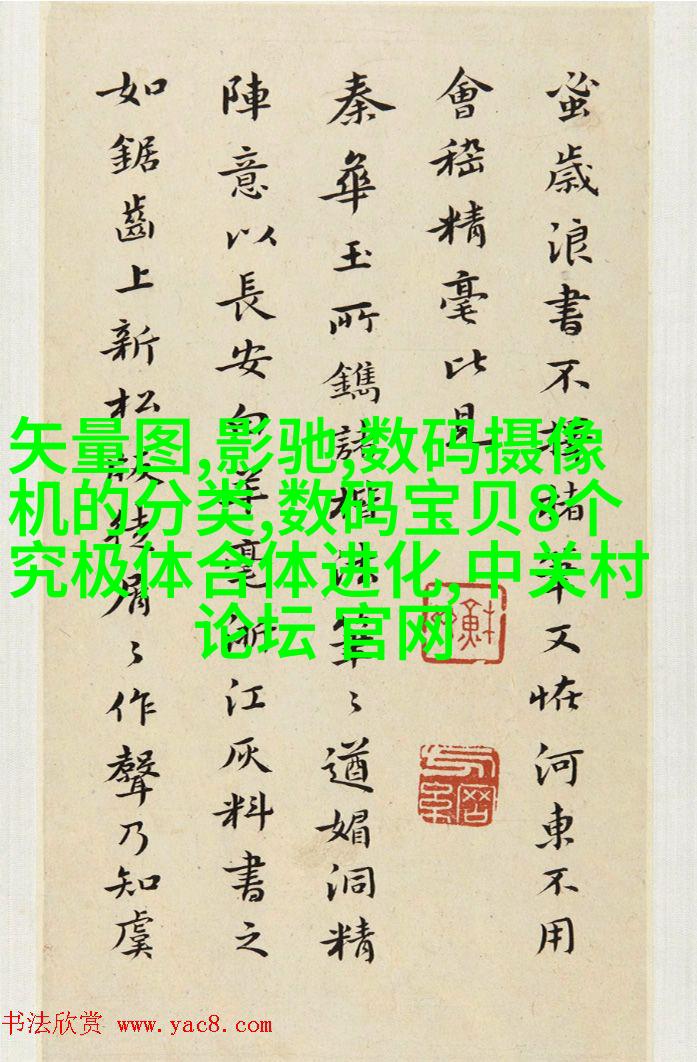 蚤歲浪書不擇楮筆又恠河東不用
會稽精毫比見
秦華玉所鐫諸楷殊筆〻遒媚洞精
陣意以長安羊毫浙江灰料書之
如鋸齒上新松屑〻作聲乃知虞
矢量图,影驰,数码摄像
机的分类,数码宝贝8个
究极体合体进化,,中关村
论坛 官网
书法欣赏 www.yac8.com